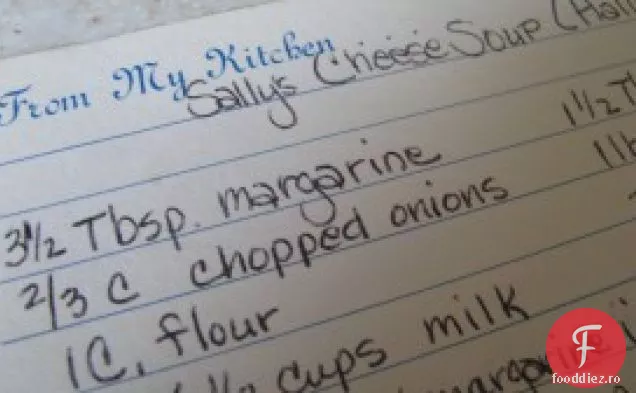 From My Kitchen
Sally's Cheese Soup (Hal
3½ Tbsp. margarine 1½ Tb
2/3 C chopped onions 1 lb
1 C. flour
½ cups milk
margarine
F
fooddiez.ro